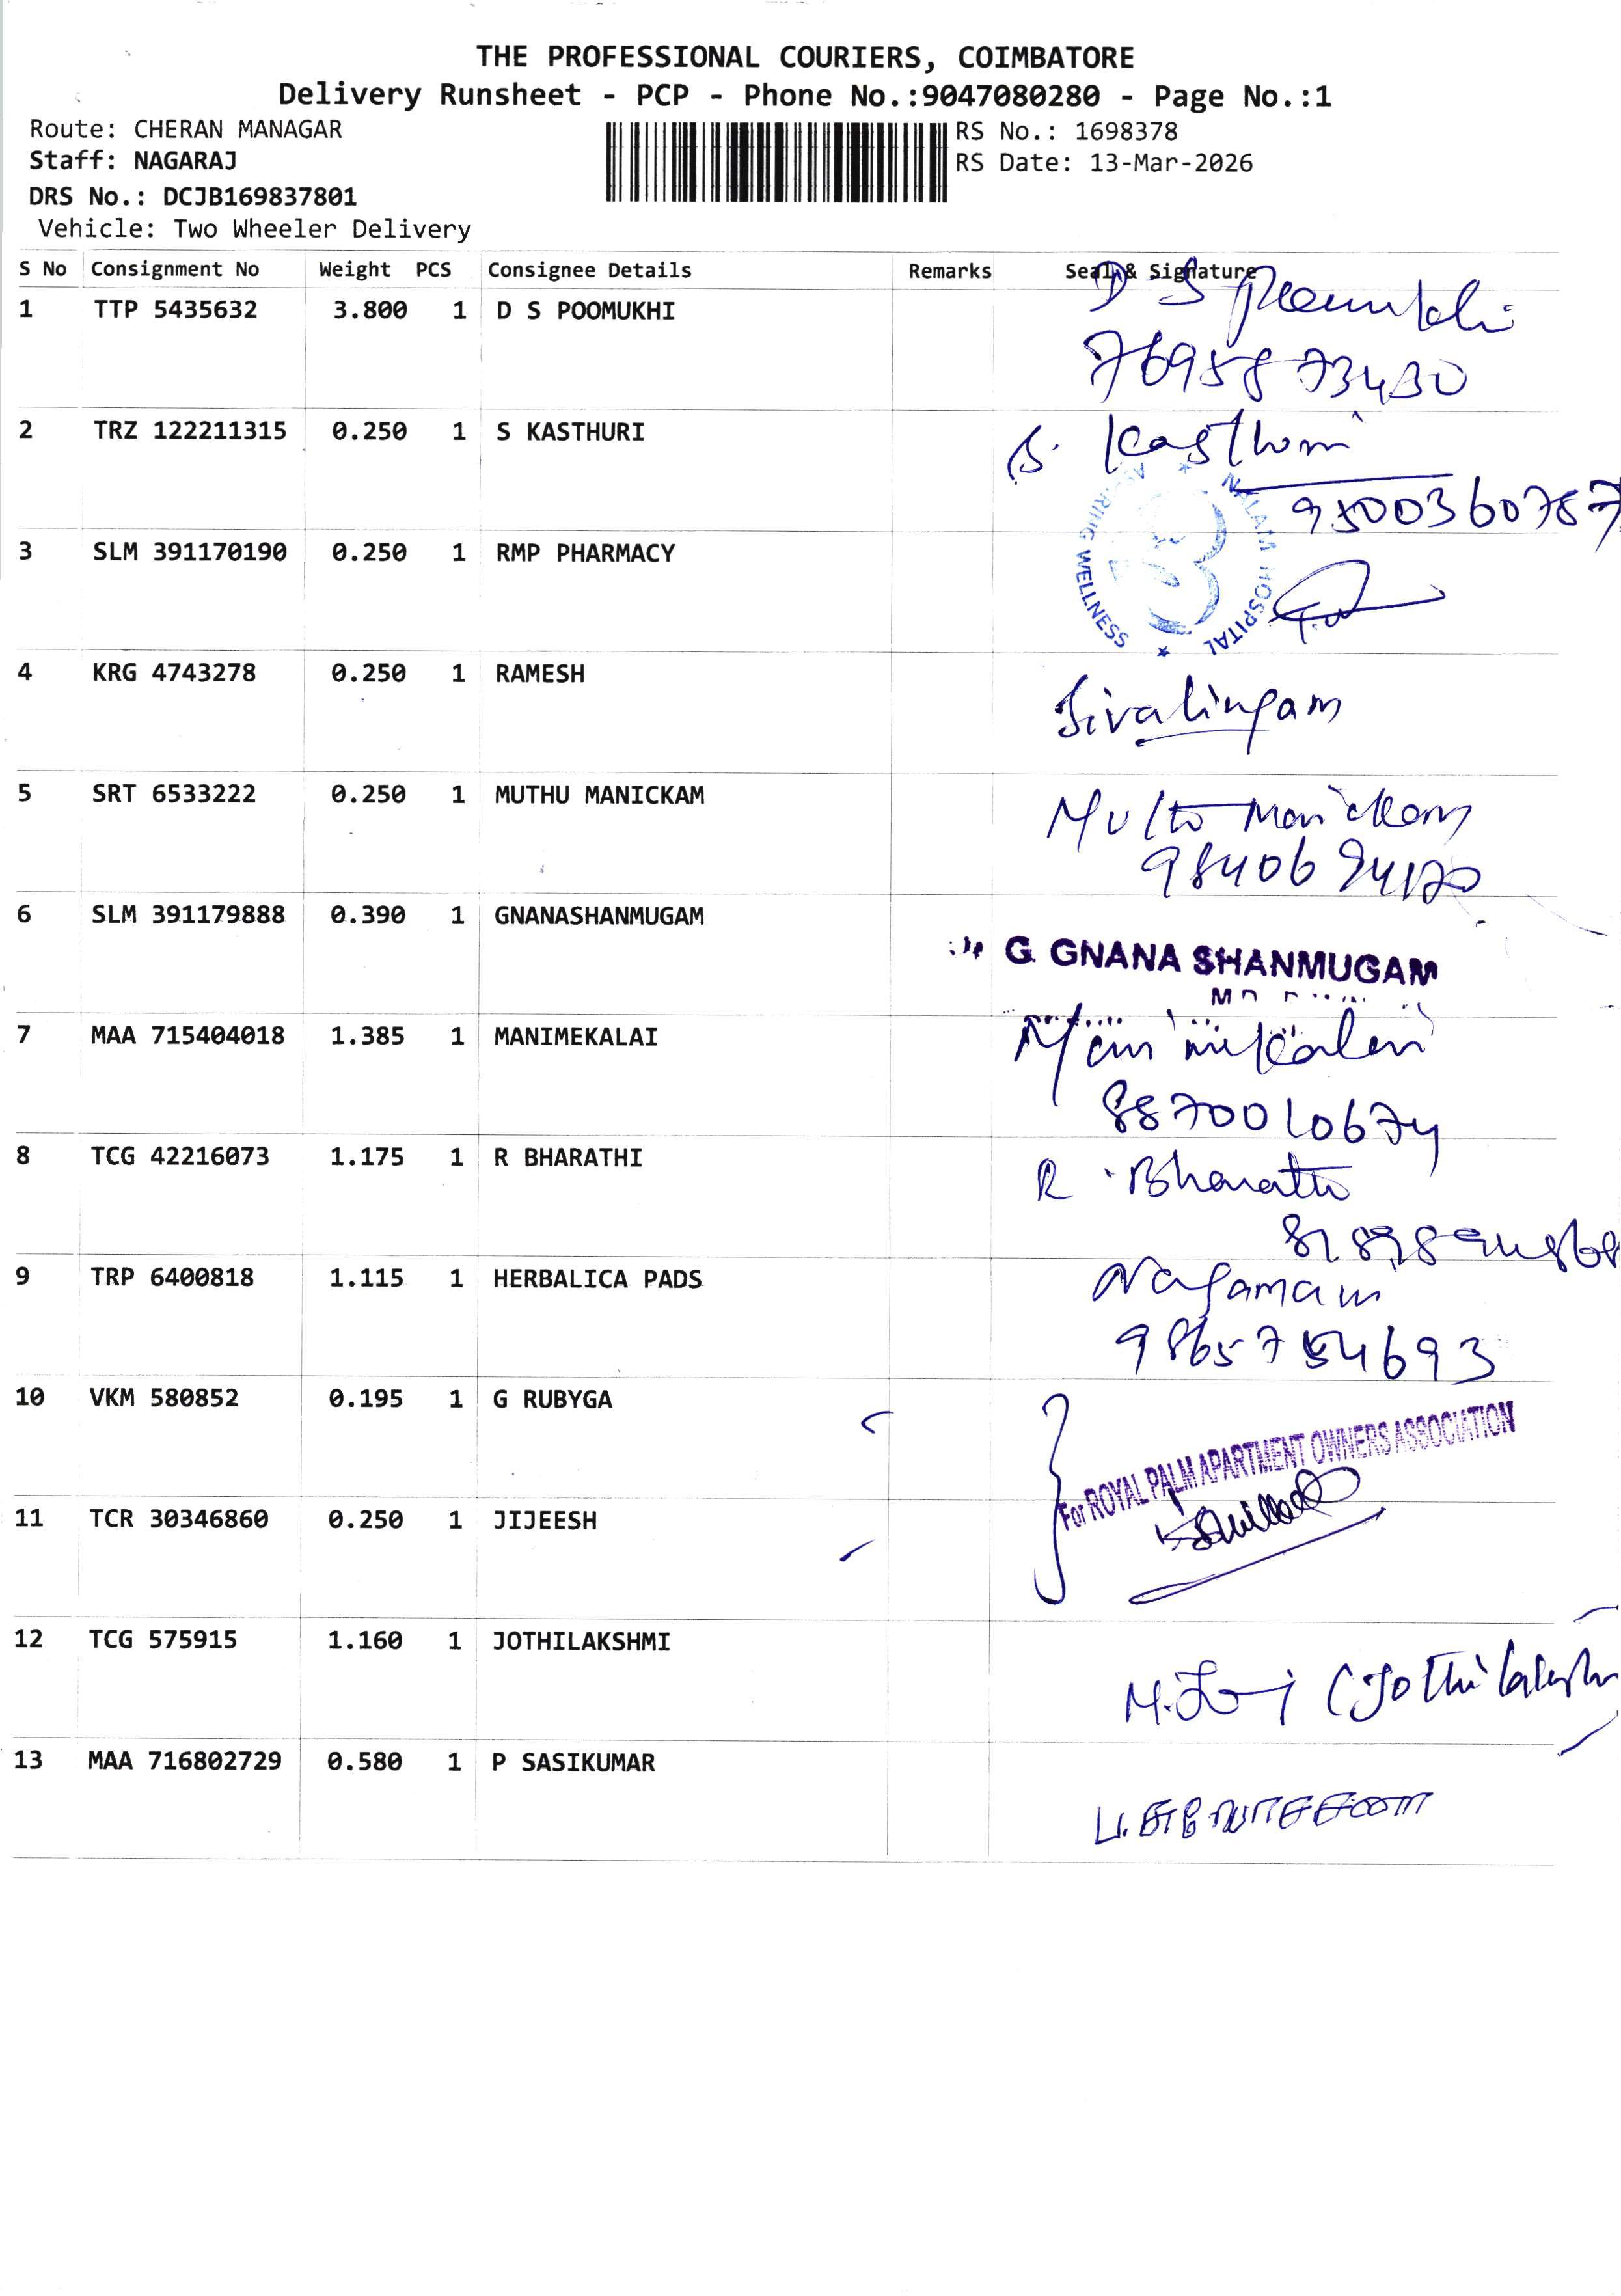 THE PROFESSIONAL COURIERS, COIMBATORE
Delivery Runsheet - PCP - Phone No.:9047080280 - Page No.:1
Route: CHERAN MANAGAR
RS No.: 1698378
Staff: NAGARAJ
RS Date: 13-Mar-2026
DRS No.: DCJB169837801
Vehicle: Two Wheeler Delivery
S No Consignment No Weight PCS Consignee Details Remarks Seal & Signature
1 TTP 5435632 3.800 1 D S POOMUKHI
D S Poomukhi
7695873430
2 TRZ 122211315 0.250 1 S KASTHURI
S. Kasthuri
9500360787
3 SLM 391170190 0.250 1 RMP PHARMACY
NALAM HOSPITAL
WELLNESS
4 KRG 4743278 0.250 1 RAMESH
Sivalingam
5 SRT 6533222 0.250 1 MUTHU MANICKAM
Muthu Manickam
6 SLM 391179888 0.390 1 GNANASHANMUGAM
G. GNANA SHANMUGAM
7 MAA 715404018 1.385 1 MANIMEKALAI
Manimekalai
8870010674
8 TCG 42216073 1.175 1 R BHARATHI
R. Bharathi
9 TRP 6400818 1.115 1 HERBALICA PADS
Nagamani
9865754693
10 VKM 580852 0.195 1 G RUBYGA
For ROYAL PALM APARTMENT OWNERS ASSOCIATION
11 TCR 30346860 0.250 1 JIJEESH
12 TCG 575915 1.160 1 JOTHILAKSHMI
(Jothilakshmi
13 MAA 716802729 0.580 1 P SASIKUMAR